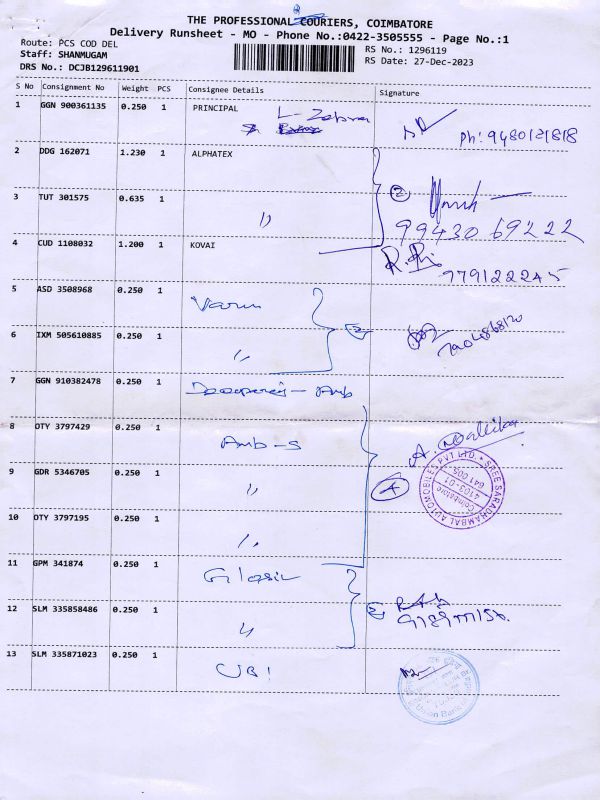 THE PROFESSIONAL COURIERS, COIMBATORE
Delivery Runsheet - MO - Phone No.:0422-3505555 - Page No.:1
Route: PCS COD DEL
Staff: SHANMUGAM
DRS No.: DCJB129611901
RS No.: 1296119
RS Date: 27-Dec-2023
S No Consignment No Weight PCS Consignee Details Signature
1 GGN 900361135 0.250 1 PRINCIPAL
L- Zebra
Ph: 9480121818
2 DDG 162071 1.230 1 ALPHATEX
2
3 TUT 301575 0.635 1 "
99430 69222
4 CUD 1108032 1.200 1 KOVAI
779122245
5 ASD 3508968 0.250 1 Varun
2
6 IXM 505610885 0.250 1 "
7904868120
7 GGN 910382478 0.250 1
8 OTY 3797429 0.250 1 Amb-s
A. Mallika
9 GDR 5346705 0.250 1 "
4
SREE SARADHAMBAL AUTOMOBILES PVT LTD.
4103-01
Coimbatore
641 005
10 OTY 3797195 0.250 1 "
11 GPM 341874 0.250 1
12 SLM 335858486 0.250 1 "
2
13 SLM 335871023 0.250 1 UBI
Union Bank